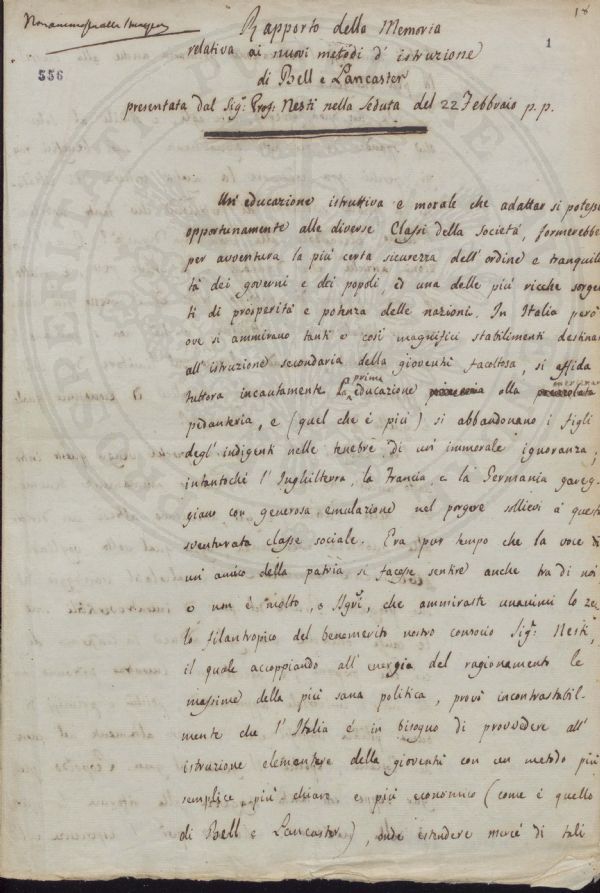 18
1
556
Rapporto della Memoria
relativa ai nuovi metodi d' istruzione
di Bell e Lancaster
presentata dal Sig.r Prof: Nesti nella seduta del 22 Febbraio p.p.
Un' educazione istruttiva e morale che adattar si potesse
opportunamente alle diverse Classi della società, formerebbe
per avventura la più certa sicurezza dell' ordine e tranquilli
tà dei governi e dei popoli, ed una delle più ricche sorgen
ti di prosperità e potenza delle nazioni. In Italia però
ove si ammirano tanti e così magnifici stabilimenti destinati
all' istruzione secondaria della gioventù facoltosa, si affida
tuttora incautamente la prima educazione alla mercenaria
pedanteria, e (quel che è più) si abbandonano i figli
degl' indigenti nelle tenebre di un' immorale ignoranza;
intantochè l' Inghilterra, la Francia e la Germania gareg-
giano con generosa emulazione nel porgere sollievi a questa
sventurata classe sociale. Era pur tempo che la voce di
un' amico della patria si facesse sentire anche tra di noi
e non è molto, o Sig.ri, che ammiraste unanimi lo ze
lo filantropico del benemerito nostro consocio Sig.r Nesti,
il quale accoppiando all' energia del ragionamento le
massime della più sana politica, provò incontrastabil-
mente che l' Italia è in bisogno di provvedere all'
istruzione elementare della gioventù con un metodo più
semplice, più chiaro e più economico (come è quello
di Bell e Lancaster), onde estendere mercè di tali